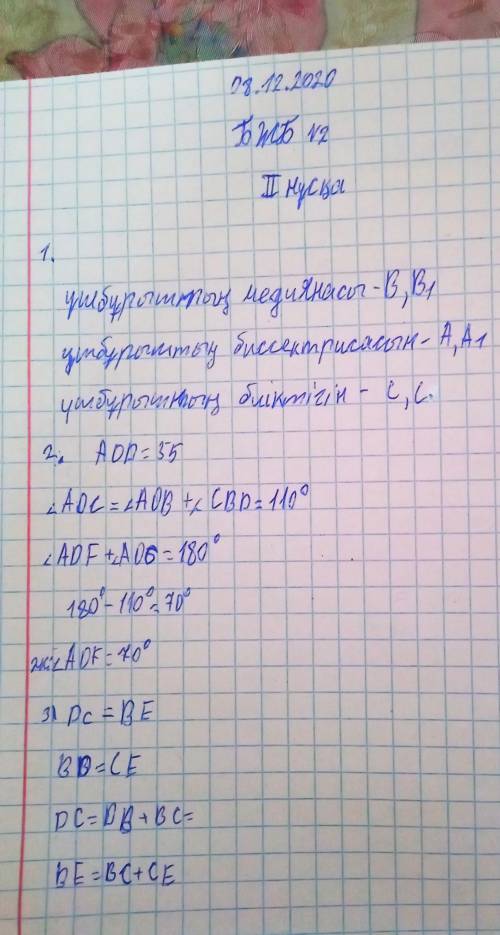 08.12.2020
БЖБ №2
II нұсқа
1.
үшбұрыштың медиянасы - B, B1
үшбұрыштың биссектрисасын - A, A1
үшбұрыштың биіктігін - C, C.
2. AOD = 55
∠AOC = ∠AOB + ∠CBD = 110°
∠ADF + ∠AOC = 180°
180° - 110° = 70°
∠AOF = 70°
3) DC = BE
BD = CE
DC = DB + BC =
BE = BC + CE